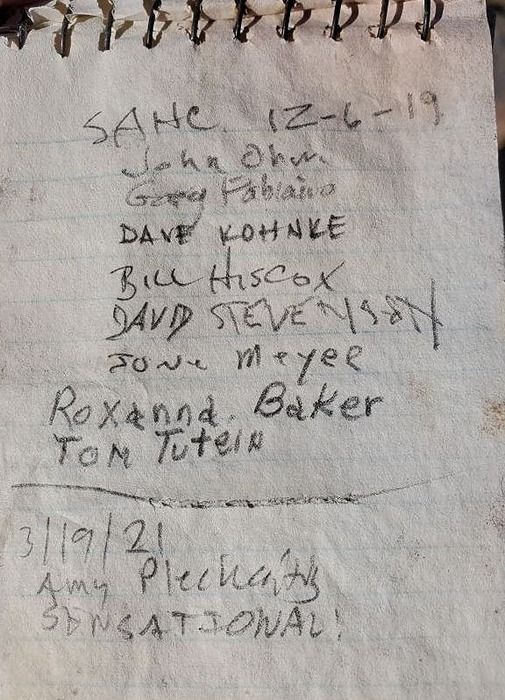 SAHC. 12-6-19
John Ohm.
Greg Fabiano
DAVE KOHNKE
BILL HISCOX
DAVID STEVENSON
JUNE Meyer
Roxanna. Baker
TOM TuteiN
3/19/21
Amy
SENSATIONAL!